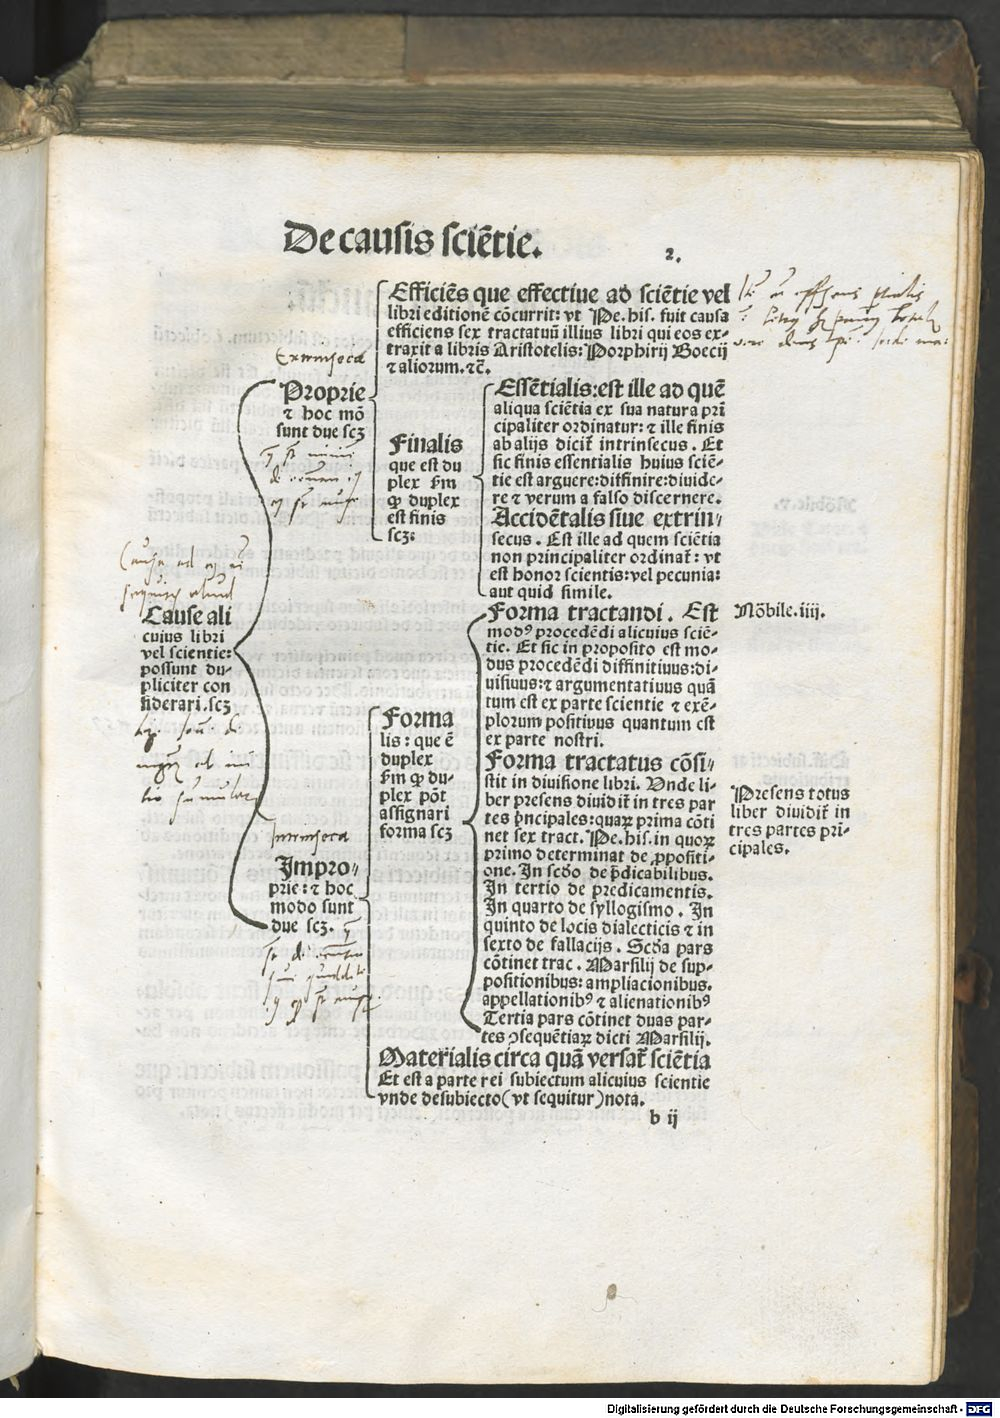 De causis sciẽtie.
2.
Efficiẽs que effectiue ad sciẽtie vel
libri editionẽ cõcurrit: vt Pe. his. fuit causa
efficiens sex tractatuũ illius libri qui eos ex-
traxit a libris Aristotelis: Porphirij Boecij
⁊ aliorum. ⁊c̃.
Extrinseca
Proprie
⁊ hoc mõ
sunt due scꝫ
Finalis
que est du
plex ẜm
ꝙ duplex
est finis
scꝫ:
Essẽtialis: est ille ad quẽ
aliqua sciẽtia ex sua natura pri
cipaliter ordinatur: ⁊ ille finis
ab alijs dicit̃ intrinsecus. Et
sic finis essentialis huius sciẽ-
tie est arguere: diffinire: diuide-
re ⁊ verum a falso discernere.
Accidẽtalis siue extrin-
secus. Est ille ad quem sciẽtia
non principaliter ordinat̃: vt
est honor scientis: vel pecunia:
aut quid simile.
Cause ali
cuius libri
vel scientie:
possunt du-
pliciter con
siderari. scꝫ
Forma tractandi. Est
modꝰ procedẽdi alicuius sciẽ-
tie. Et sic in proposito est mo-
dus procedẽdi diffinitiuus: di-
uisiuus: ⁊ argumentatiuus quã
tum est ex parte scientie ⁊ exẽ-
plorum positiuus quantum est
ex parte nostri.
Nõbile. iiij.
Forma
lis: que ẽ
duplex
ẜm ꝙ du-
plex põt
assignari
forma scꝫ
Forma tractatus cõsi-
stit in diuisione libri. Unde li-
ber presens diuidit̃ in tres par
tes p̃ncipales: quaꝝ prima cõti
net sex tract. Pe. his. in quoꝝ
primo determinat de ꝓpositi-
one. In scðo de p̃dicabilibus.
In tertio de predicamentis.
In quarto de syllogismo. In
quinto de locis dialecticis ⁊ in
sexto de fallacijs. Scða pars
cõtinet trac. Marsilij de sup-
positionibus: ampliacionibus.
appellationibꝰ ⁊ alienationibꝰ
Tertia pars cõtinet duas par-
tes ↄsequẽtiaꝝ dicti Marsilij.
Presens totus
liber diuidit̃ in
tres partes pri-
cipales.
Intrinseca
Impro-
prie: ⁊ hoc
modo sunt
due scꝫ.
Materialis circa quã versat̃ sciẽtia
Et est a parte rei subiectum alicuius scientie
vnde de subiecto (vt sequitur) nota.
b ij
Digitalisierung gefördert durch die Deutsche Forschungsgemeinschaft - DFG